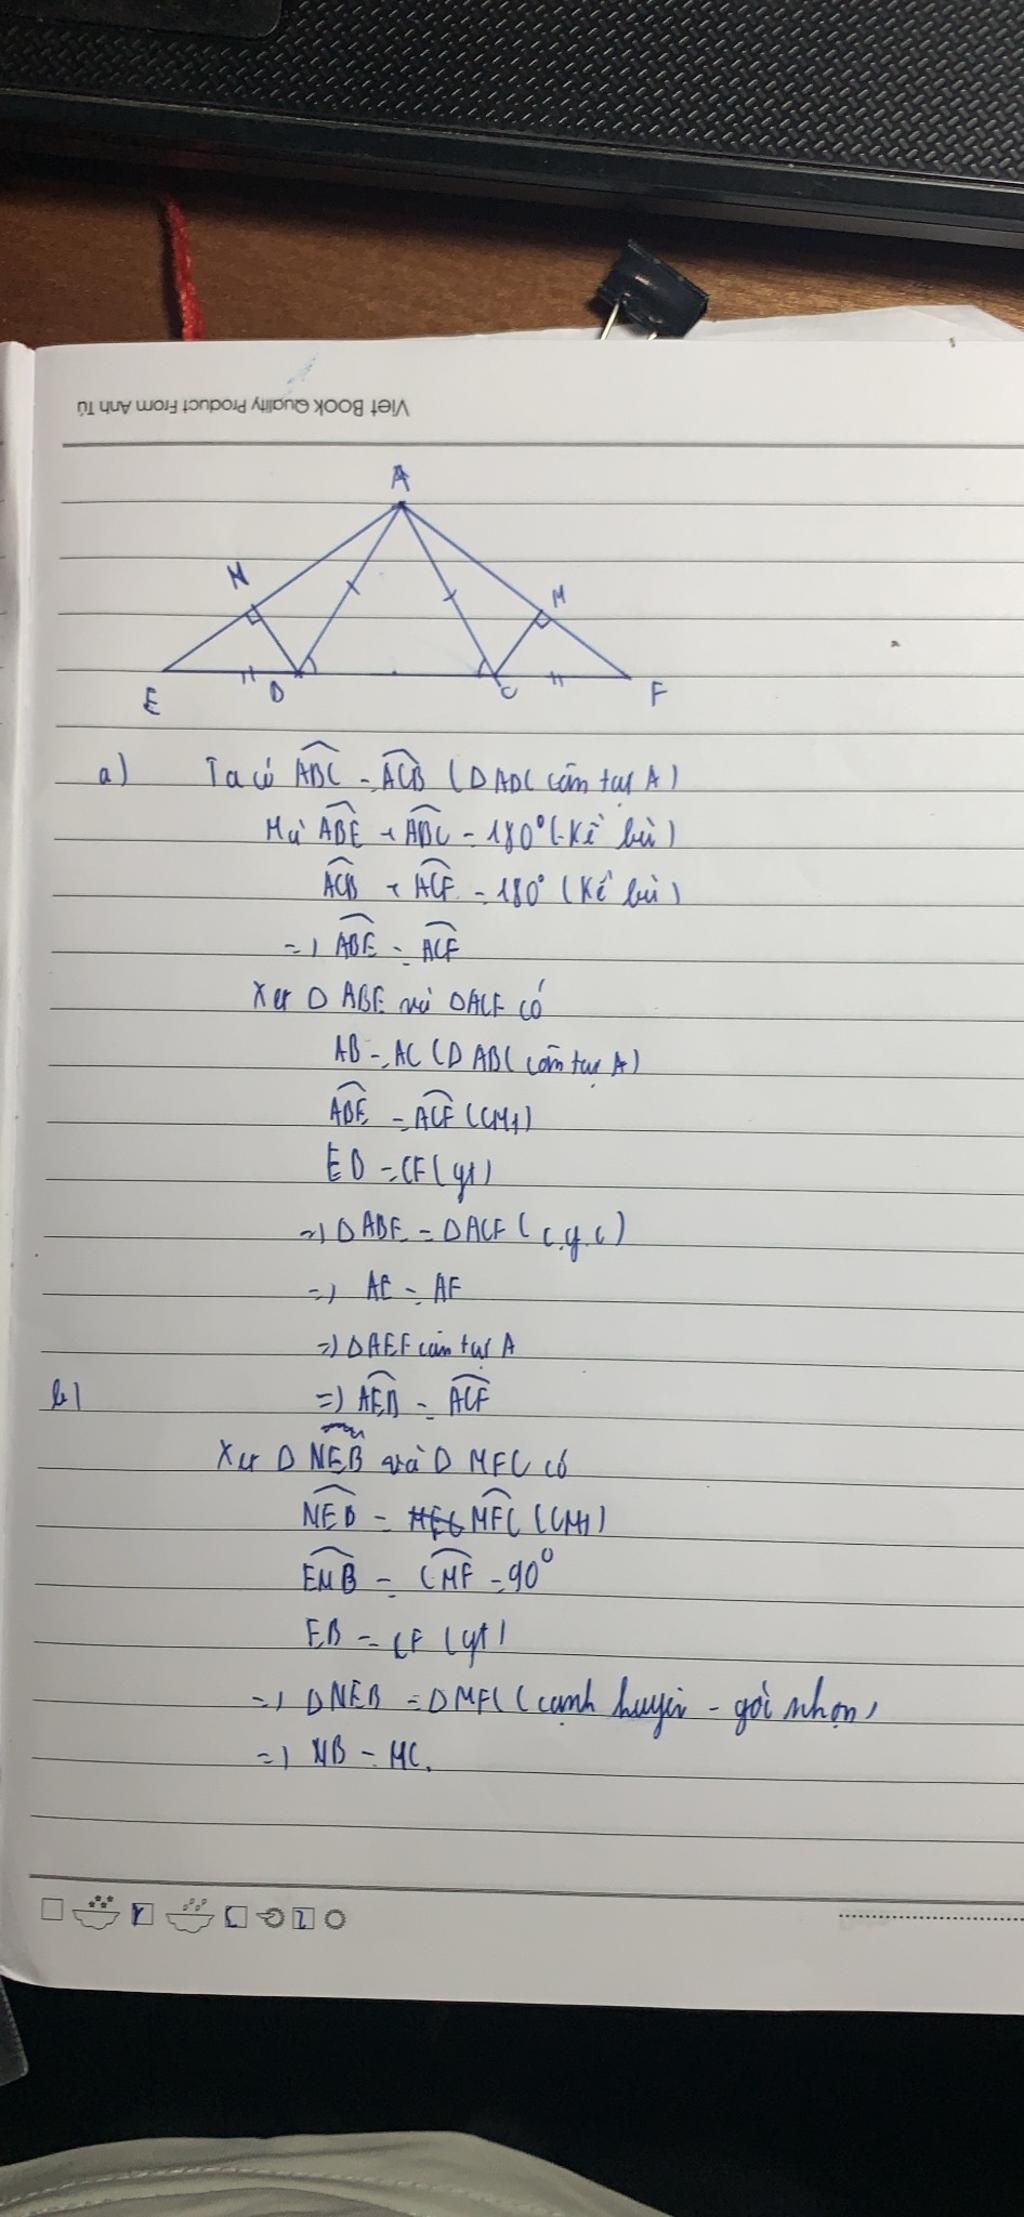 Viet Book Quality Product From Anh Tú
A
N
M
E
B
C
F
a) Ta có ABC = ACB (Δ ABC cân tại A)
Mà ABE + ABC = 180° (Kề bù)
ACB + ACF = 180° (Kề bù)
=) ABE = ACF
Xét Δ ABE và ΔACF có
AB = AC (Δ ABC cân tại A)
ABE = ACF (CMT)
EB = CF (gt)
=) Δ ABE = ΔACF (c.g.c)
=) AE = AF
=) ΔAEF cân tại A
b) =) AEB = ACF
Xét Δ NEB và Δ MFC có
NEB = MFC (CMT)
ENB = CMF = 90°
EB = CF (gt)
=) ΔNEB = ΔMFC (cạnh huyền - góc nhọn)
=) NB = MC.